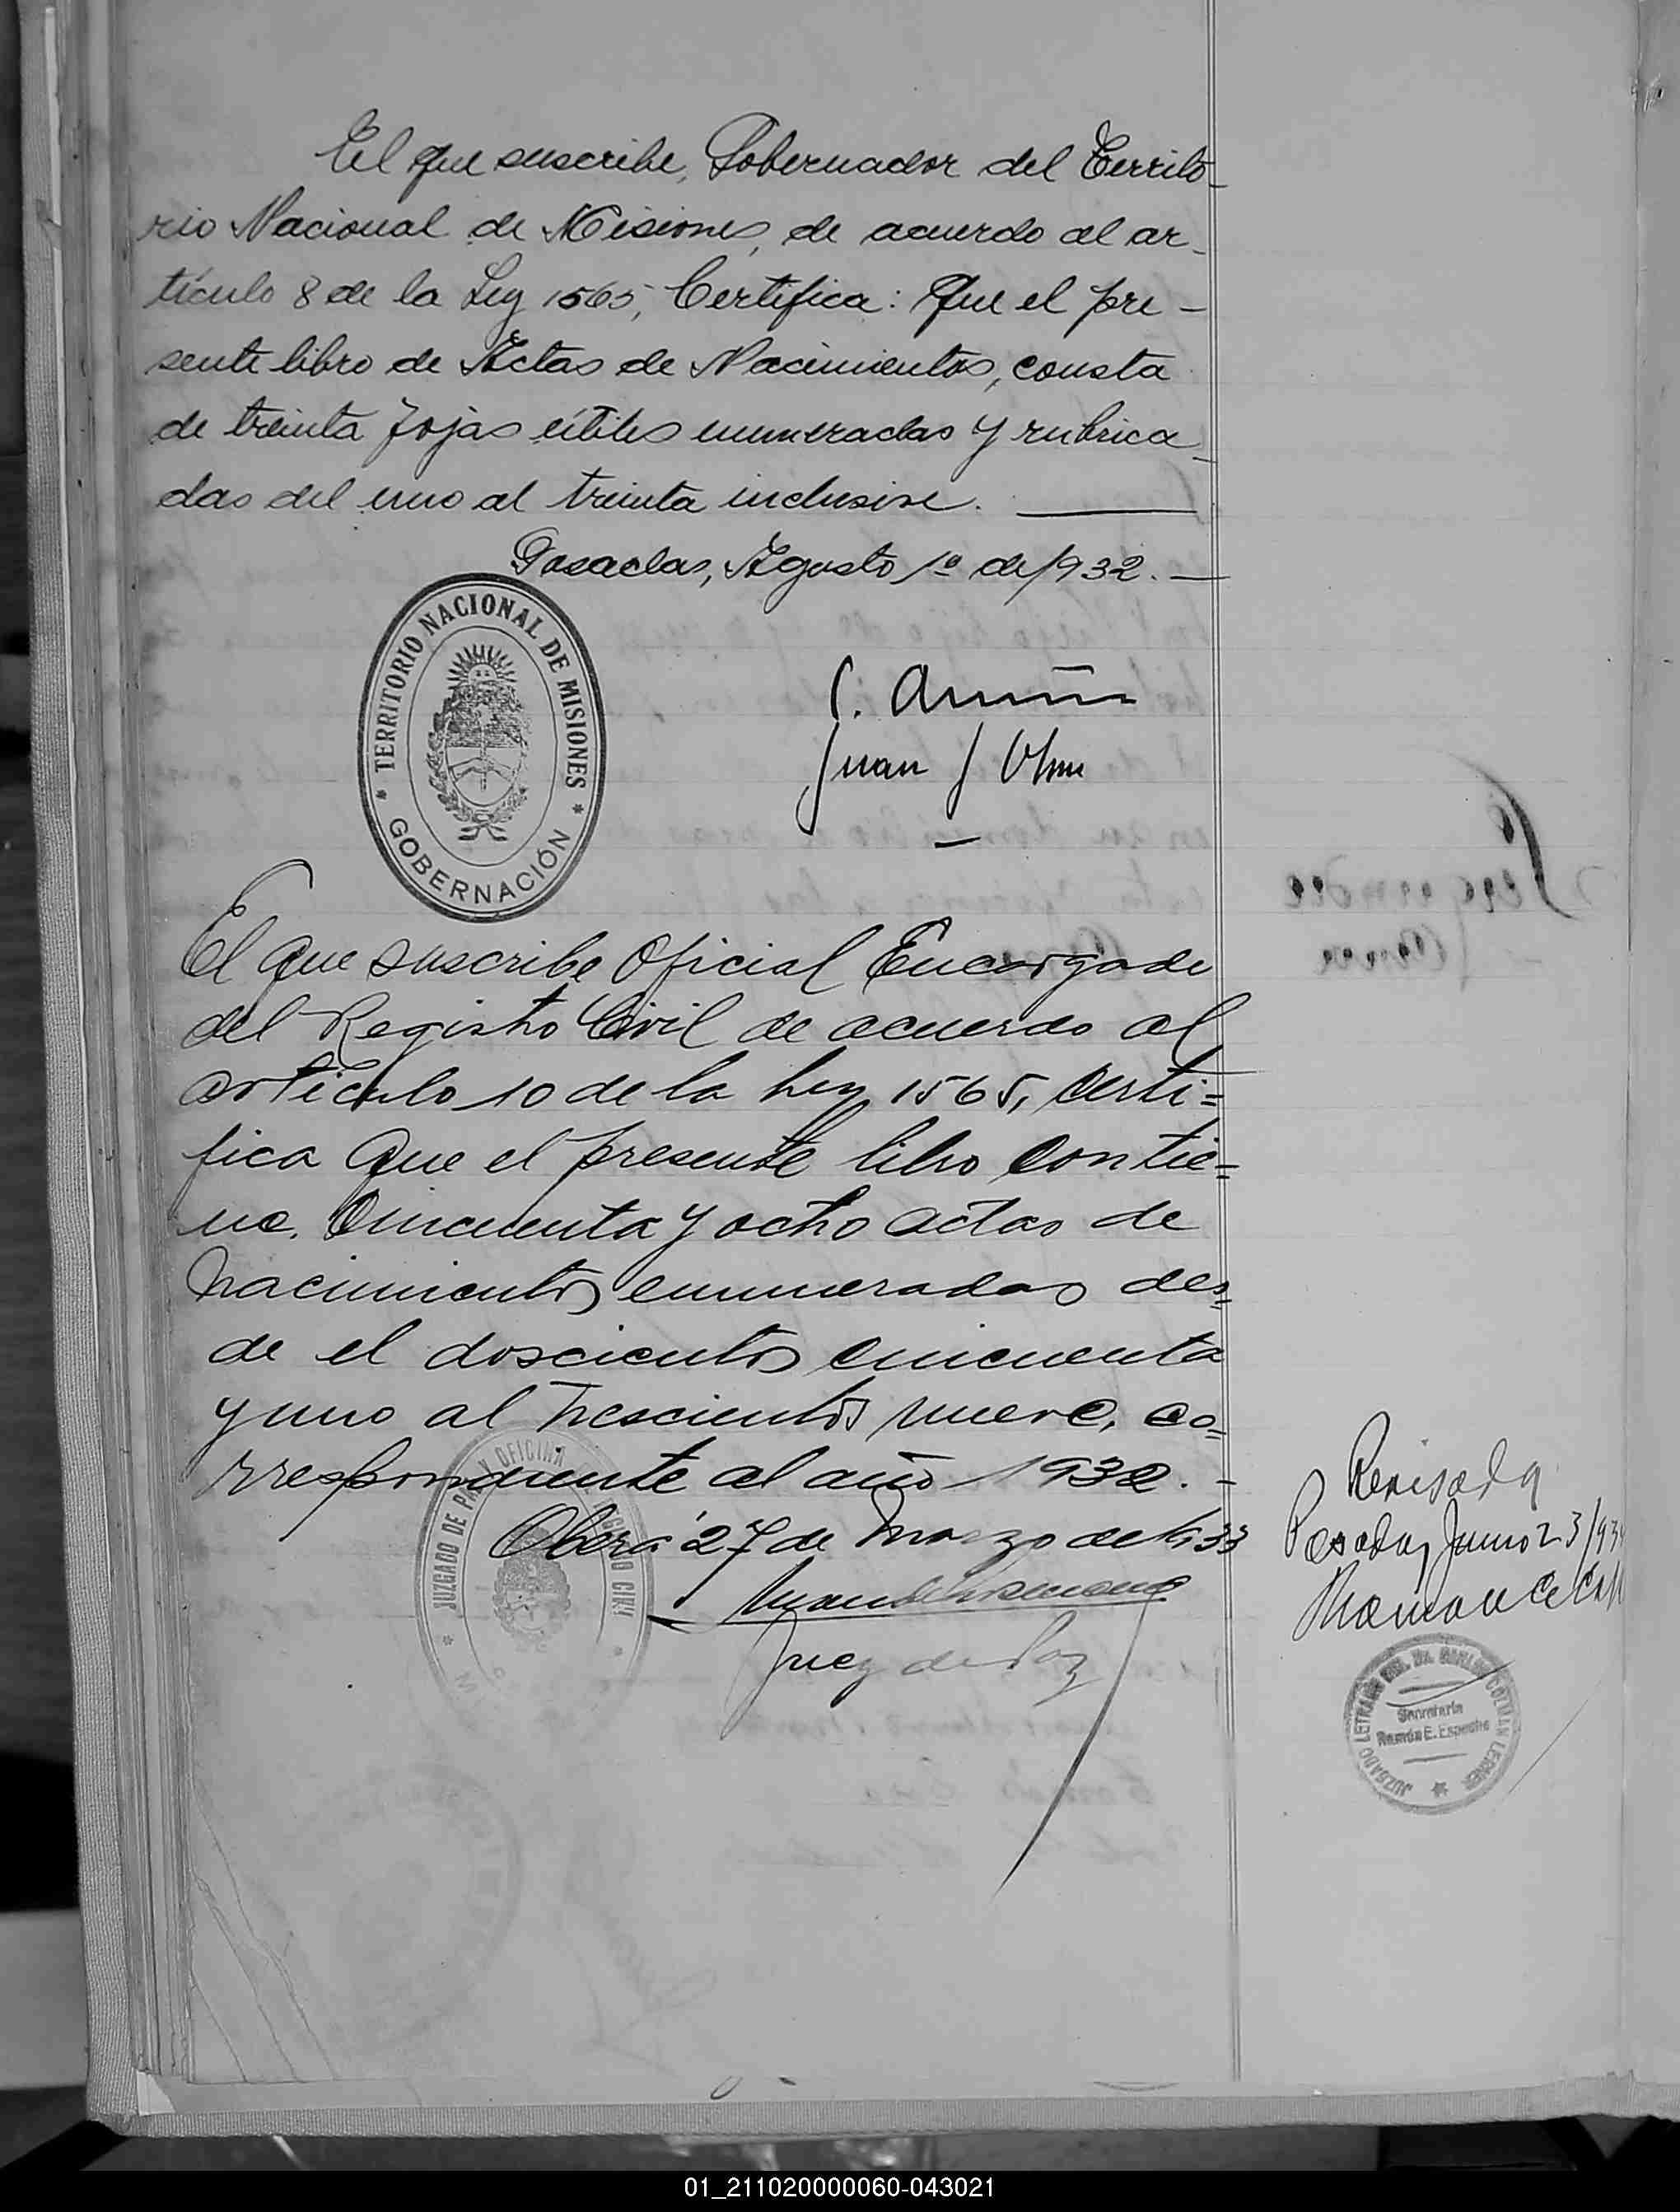 El que suscribe, Gobernador del Territo-
rio Nacional de Misiones, de acuerdo al ar-
tículo 8 de la Ley 1565, Certifica: Que el pre-
sente libro de Actas de Nacimientos, consta
de treinta fojas útiles enumeradas y rubrica-
das del uno al treinta inclusive.
Posadas, Agosto 1º de 1932.-
TERRITORIO NACIONAL DE MISIONES
GOBERNACIÓN
Juan J
El que suscribe Oficial Encargado
del Registro Civil de acuerdo al
artículo 10 de la Ley 1565, certi=
fica que el presente libro contie=
ne. Cincuenta y ocho actas de
Nacimientos enumeradas des=
de el doscientos cincuenta
y uno al trescientos nueve, co=
rrespondiente al año 1932.-
Oberá 27 de Marzo de 1933
Juez de Paz
JUZGADO DE PAZ Y OFICINA REGISTRO CIVIL
Revisada
Posadas, Junio 23/934
JUZGADO LETRADO DEL DR. CARLOS COLMAN LERNER
Secretaría
Ramón E. Espeche
01_211020000060-043021